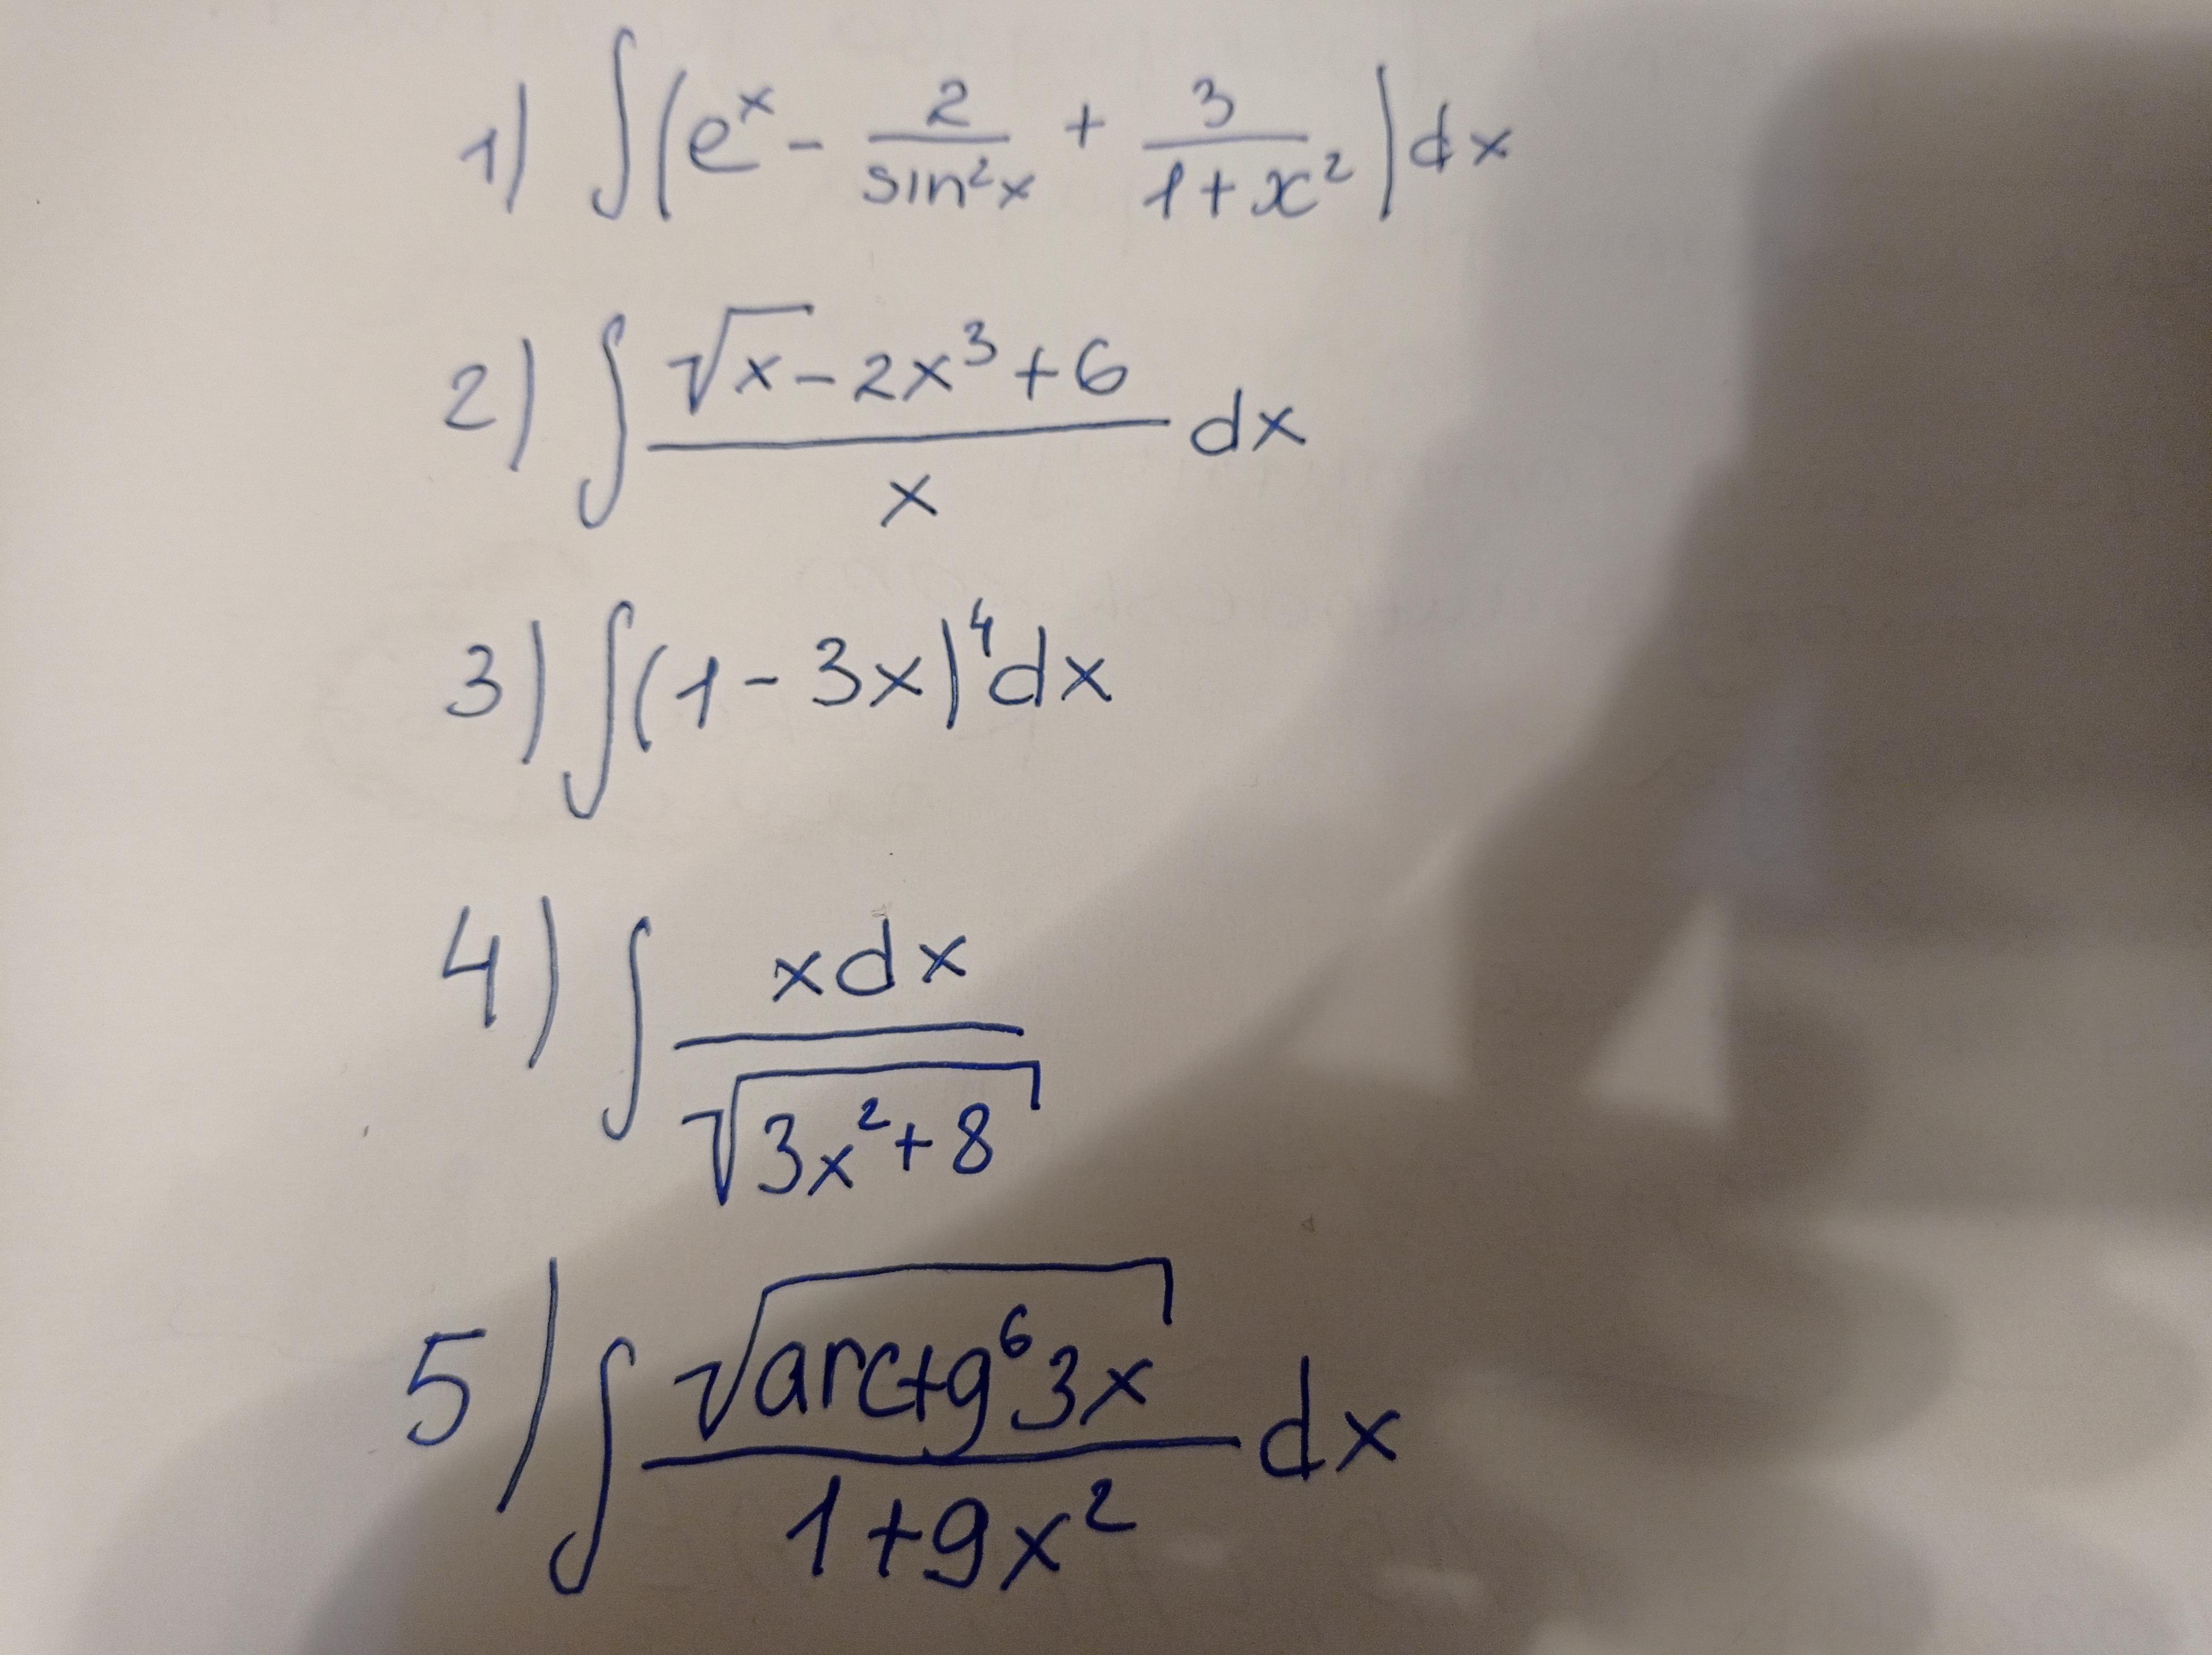 1) ∫(eˣ - 2/sin²x + 3/(1+x²))dx
2) ∫ (√x - 2x³ + 6)/x dx
3) ∫(1 - 3x)⁴dx
4) ∫ xdx/√(3x² + 8)
5) ∫ √(arctg⁶3x)/(1+9x²) dx